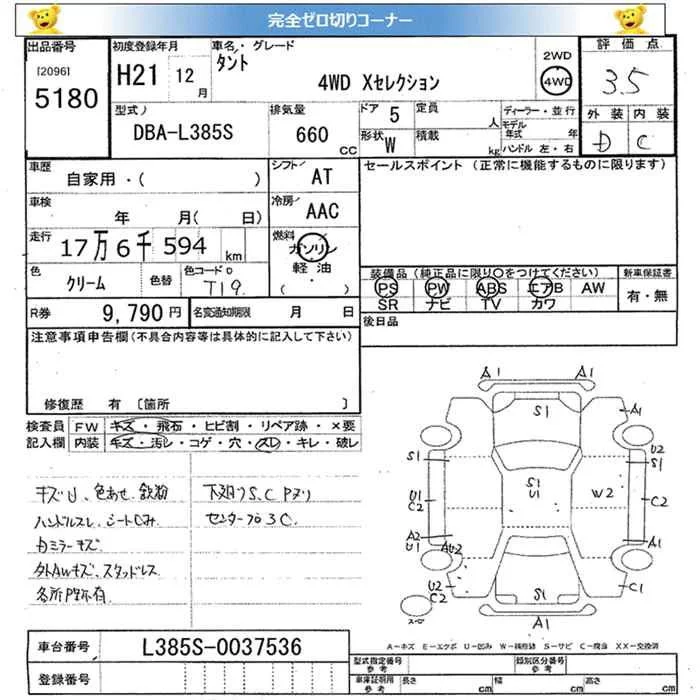 完全ゼロ切りコーナー
出品番号
[2096]
5180
初度登録年月
H21 12月
車名・グレード
タント
4WD Xセレクション
2WD
4WD
評価点
3.5
外装 内装
D C
型式
DBA-L385S
排気量
660 CC
ドア 5
形状 W
定員 人
積載 kg
ディーラー・並行
モデル年式 年
ハンドル 左・右
車歴
自家用・( )
シフト AT
車検
年 月( 日)
冷房 AAC
走行
17万6千594 km
燃料
ガソリン
軽油
( )
色
クリーム
色替
色コードNo
T19
セールスポイント (正常に機能するものに限ります)
装備品(純正品に限り○をつけてください)
PS PW ABS エアB AW
SR ナビ TV カワ
新車保証書
有・無
R券 9,790円
名変通知期限 月 日
後日品
注意事項申告欄(不具合内容等は具体的に記入して下さい)
修復歴 有 [箇所 ]
検査員記入欄
FW キズ・飛石・ヒビ割・リペア跡・×要
内装 キズ・汚レ・コゲ・穴・スレ・キレ・破レ
キズU、色あせ、鉄粉
ハンドルスレ、シートじみ
カミラーキズ
外AWキズ、スタッドレス
下廻りS、C Pヌリ
A1 A1
S1
A1
S1
U2
S1
U1
C2
S1
U1
W2
C2
A2
U1
AU2
A1
U2
C2
S1
C1
A1
A-キズ E-エクボ U-凹み W-補修跡 S-サビ C-腐蝕 XX-交換済
車台番号 L385S-0037536
登録番号
型式指定番号 参考
類別区分番号 参考
車庫証明用 参考
長さ cm
幅 cm
高さ cm